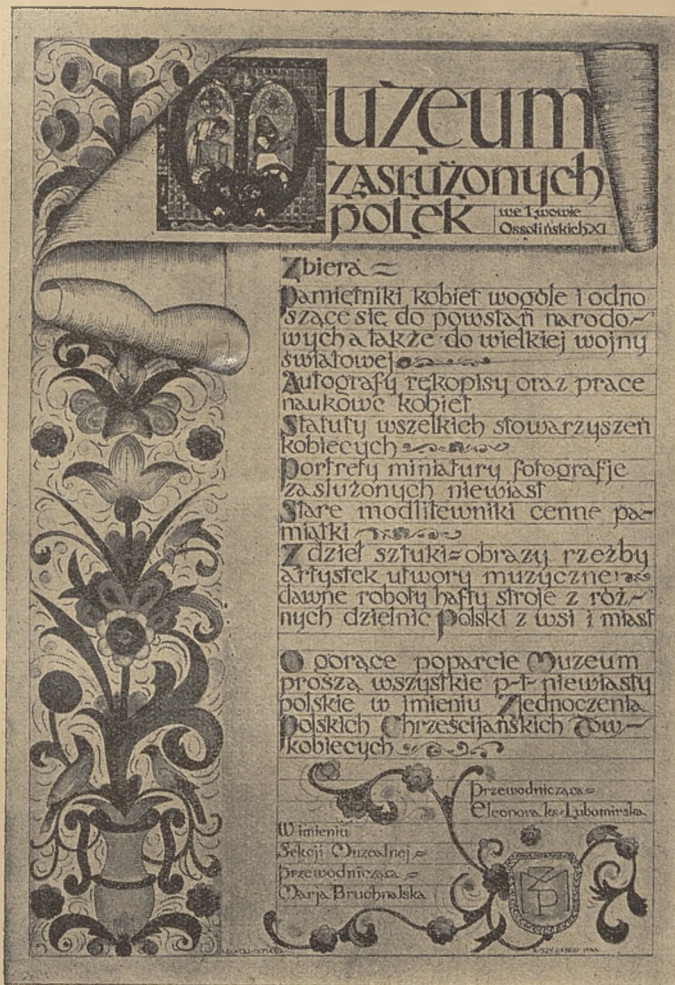 Muzeum
zasłużonych
polek
we Lwowie
Ossolińskich XI
Zbiera =
Pamiętniki kobiet wogóle i odno
szące się do powstań narodo-
wych a także do wielkiej wojny
światowej
Autografy rękopisy oraz prace
naukowe kobiet
Statuty wszelkich stowarzyszeń
kobiecych
Portrety miniatury fotografje
zasłużonych niewiast
Stare modlitewniki cenne pa-
miątki
Z dzieł sztuki = obrazy rzeźby
artystek utwory muzyczne
dawne roboty hafty stroje z róż-
nych dzielnic Polski z wsi i miast
O gorące poparcie Muzeum
proszą wszystkie p-t- niewiasty
polskie w imieniu Zjednoczenia
Polskich Chrześcijańskich Tow-
kobiecych
Przewodnicząca =
Eleonora ks- Lubomirska
W imieniu
Sekcji Muzealnej =
przewodnicząca =
Marja Bruchnalska
ZP